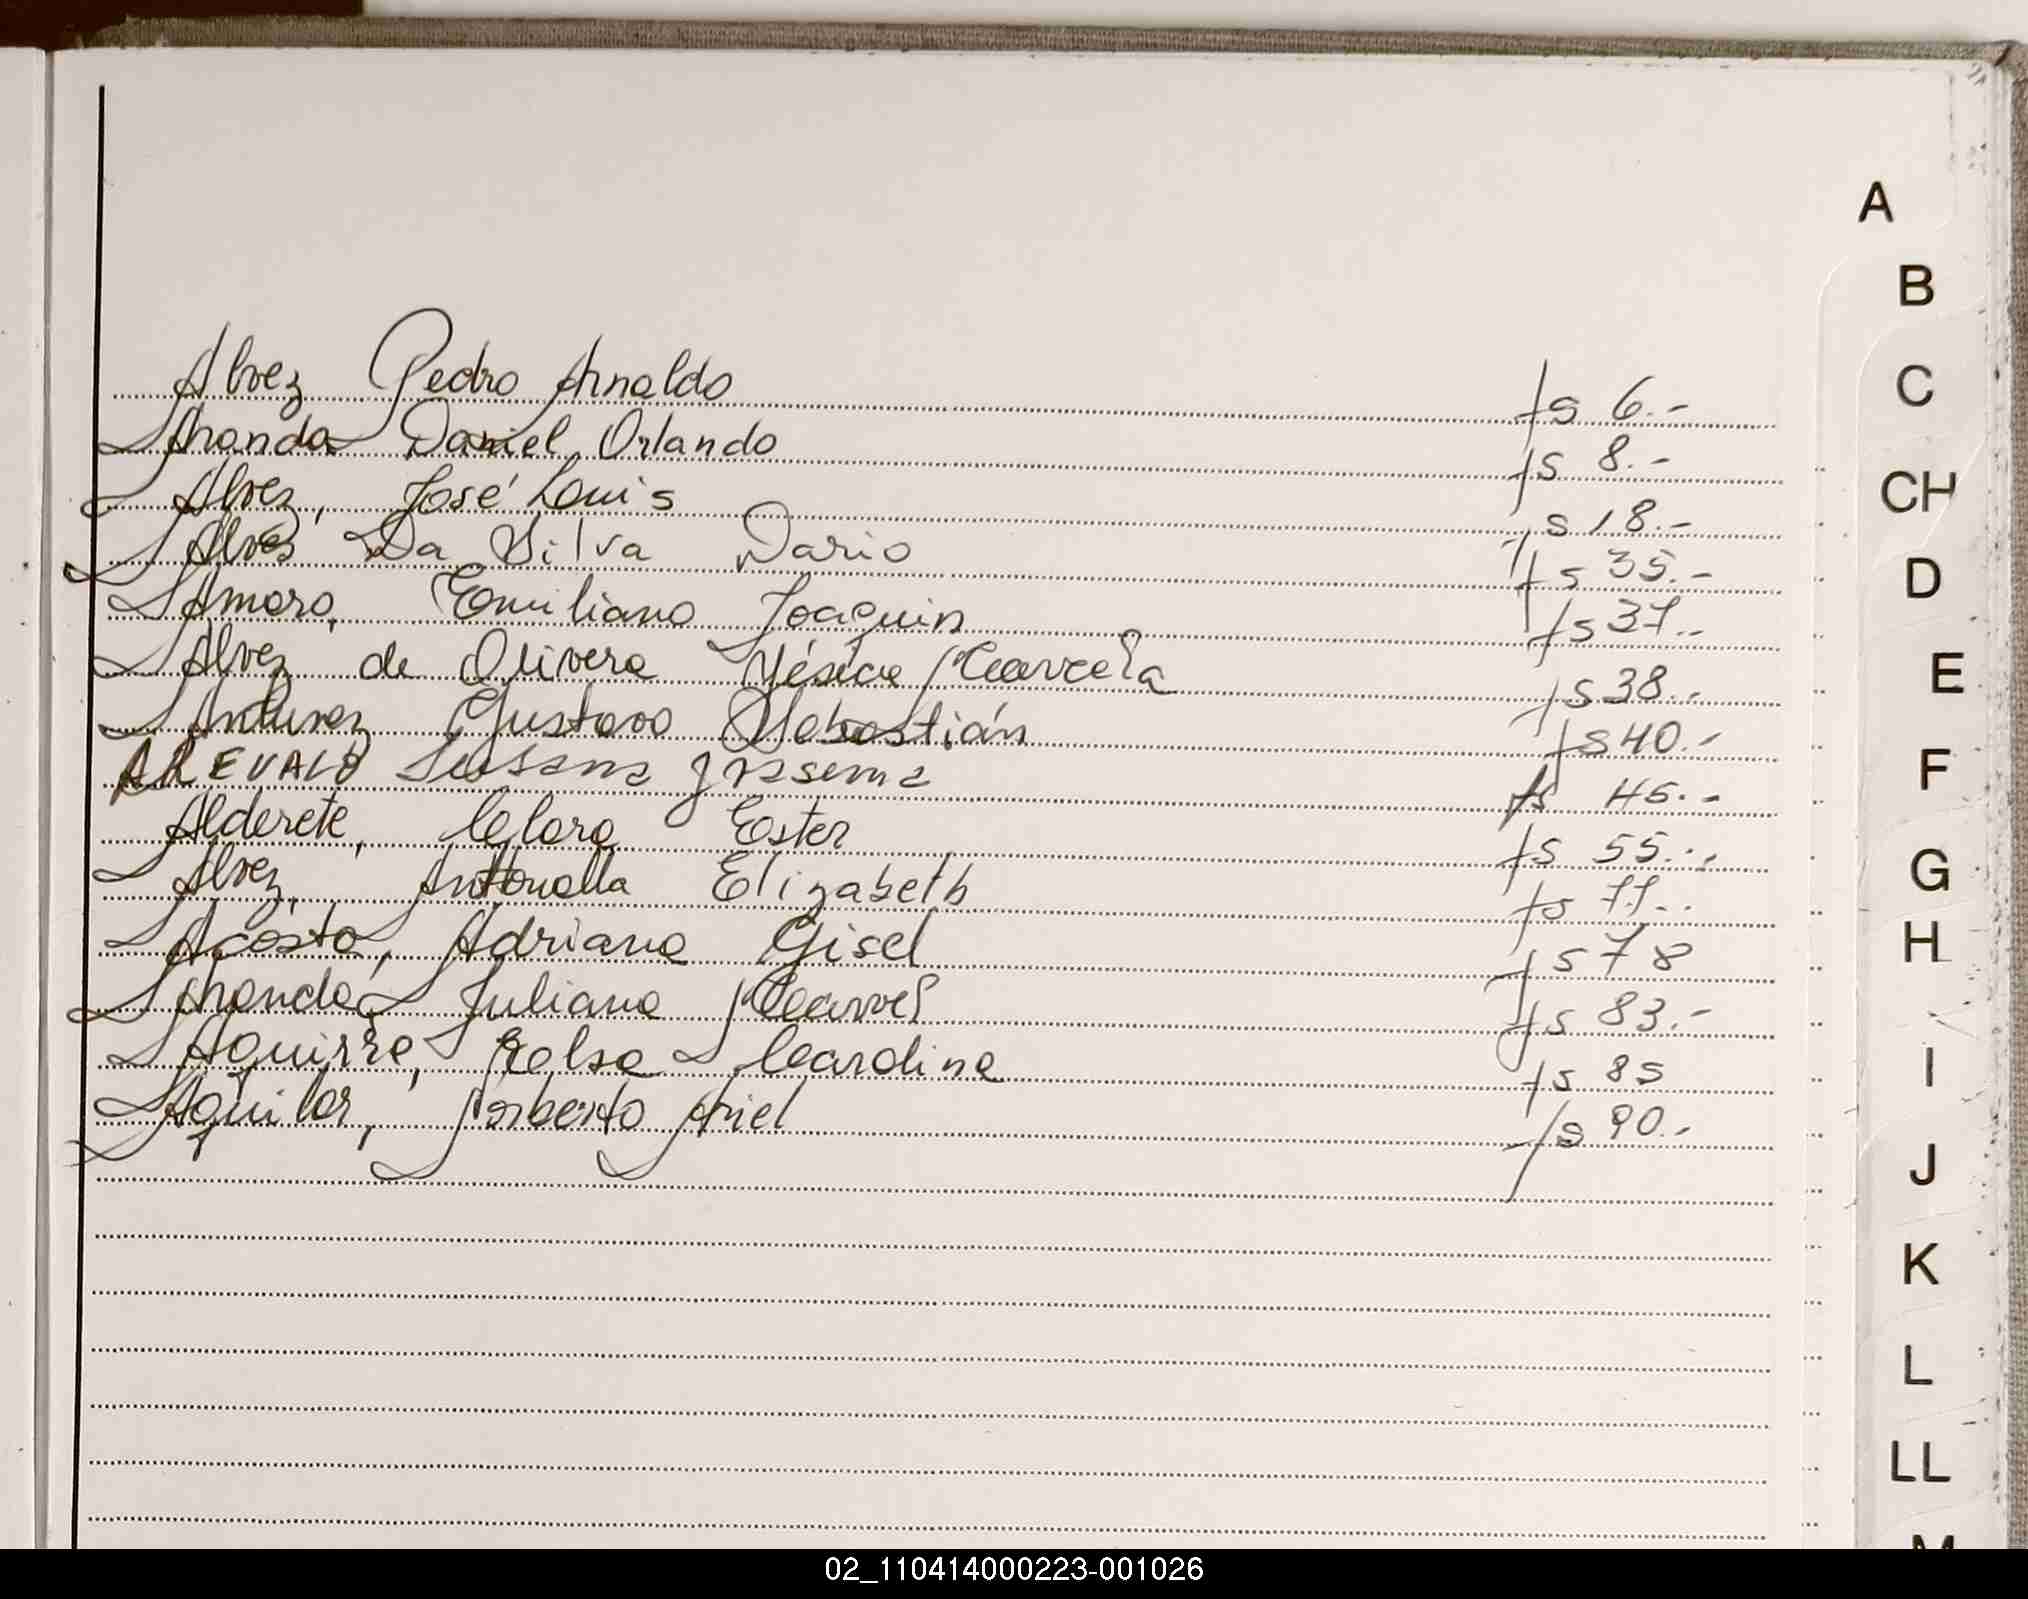 A
B
C
CH
D
E
F
G
H
I
J
K
L
LL
M
Alvez Pedro Arnaldo fs 6.-
Aranda Daniel Orlando fs 8.-
Alvez, José Louis fs 18.-
Alves Da Silva Dario fs 35.-
Amaro, Emiliano Joaquin fs 37.-
Alvez de Olivera Yésica Marcela fs 38.-
Antunez Gustavo Sebastián fs 40.-
AREVALO Susana fs 45.-
Alderete, Clara Ester fs 55.-
Alvez, Antonella Elizabeth fs 77.-
Acosta, Adriana Gisel fs 78
Aranda, Juliana Maricel fs 83.-
Aguirre, Elsa Carolina fs 85
Aguilar, Norberto Ariel fs 90.-
02_110414000223-001026